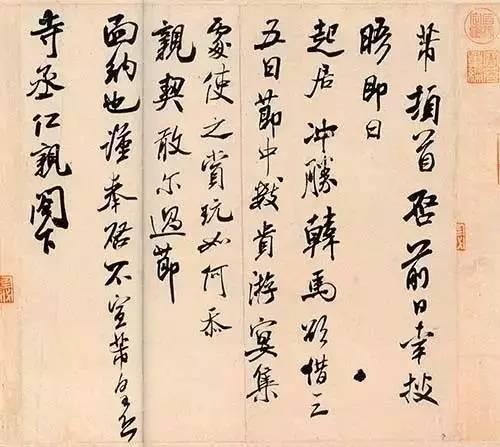 芾頓首启前日幸披
晤即日
起居冲勝韓馬欲借三
五日節中數貴游宴集
處使之賞玩如何忝
親契敢尔過節
面納也謹奉启不宣芾皇恐
寺丞仁親閣下